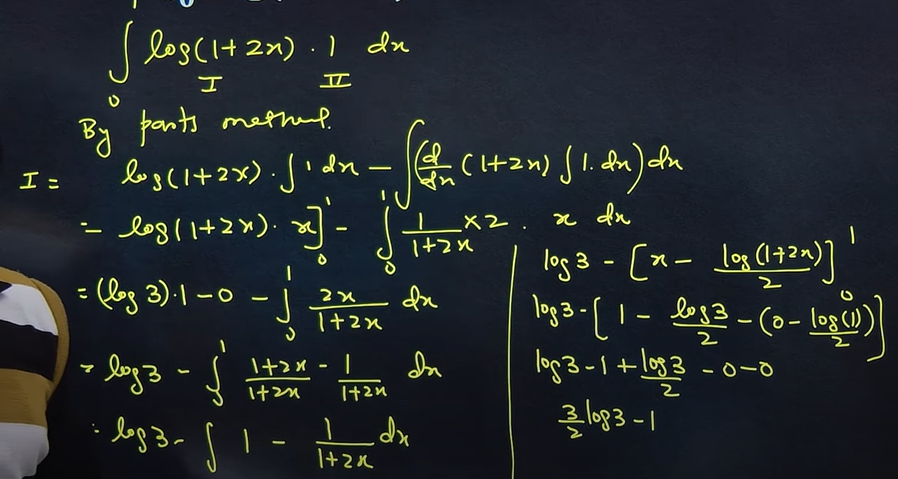 ∫₀ log(1+2x) · 1 dx
I II
By parts method.
I = log(1+2x) · ∫1 dx − ∫(d/dx (1+2x) ∫1. dx) dx
= log(1+2x) · x]₀¹ − ∫₀¹ 1/(1+2x) ×2 . x dx
= (log 3).1 − 0 − ∫₀¹ 2x/(1+2x) dx
= log 3 − ∫₀¹ (1+2x)/(1+2x) − 1/(1+2x) dx
= log 3 − ∫ 1 − 1/(1+2x) dx
log 3 − [x − log(1+2x)/2]₀¹
log 3 − [1 − log 3/2 − (0 − log(1)/2)]
log 3 − 1 + log 3/2 − 0 − 0
3/2 log 3 − 1